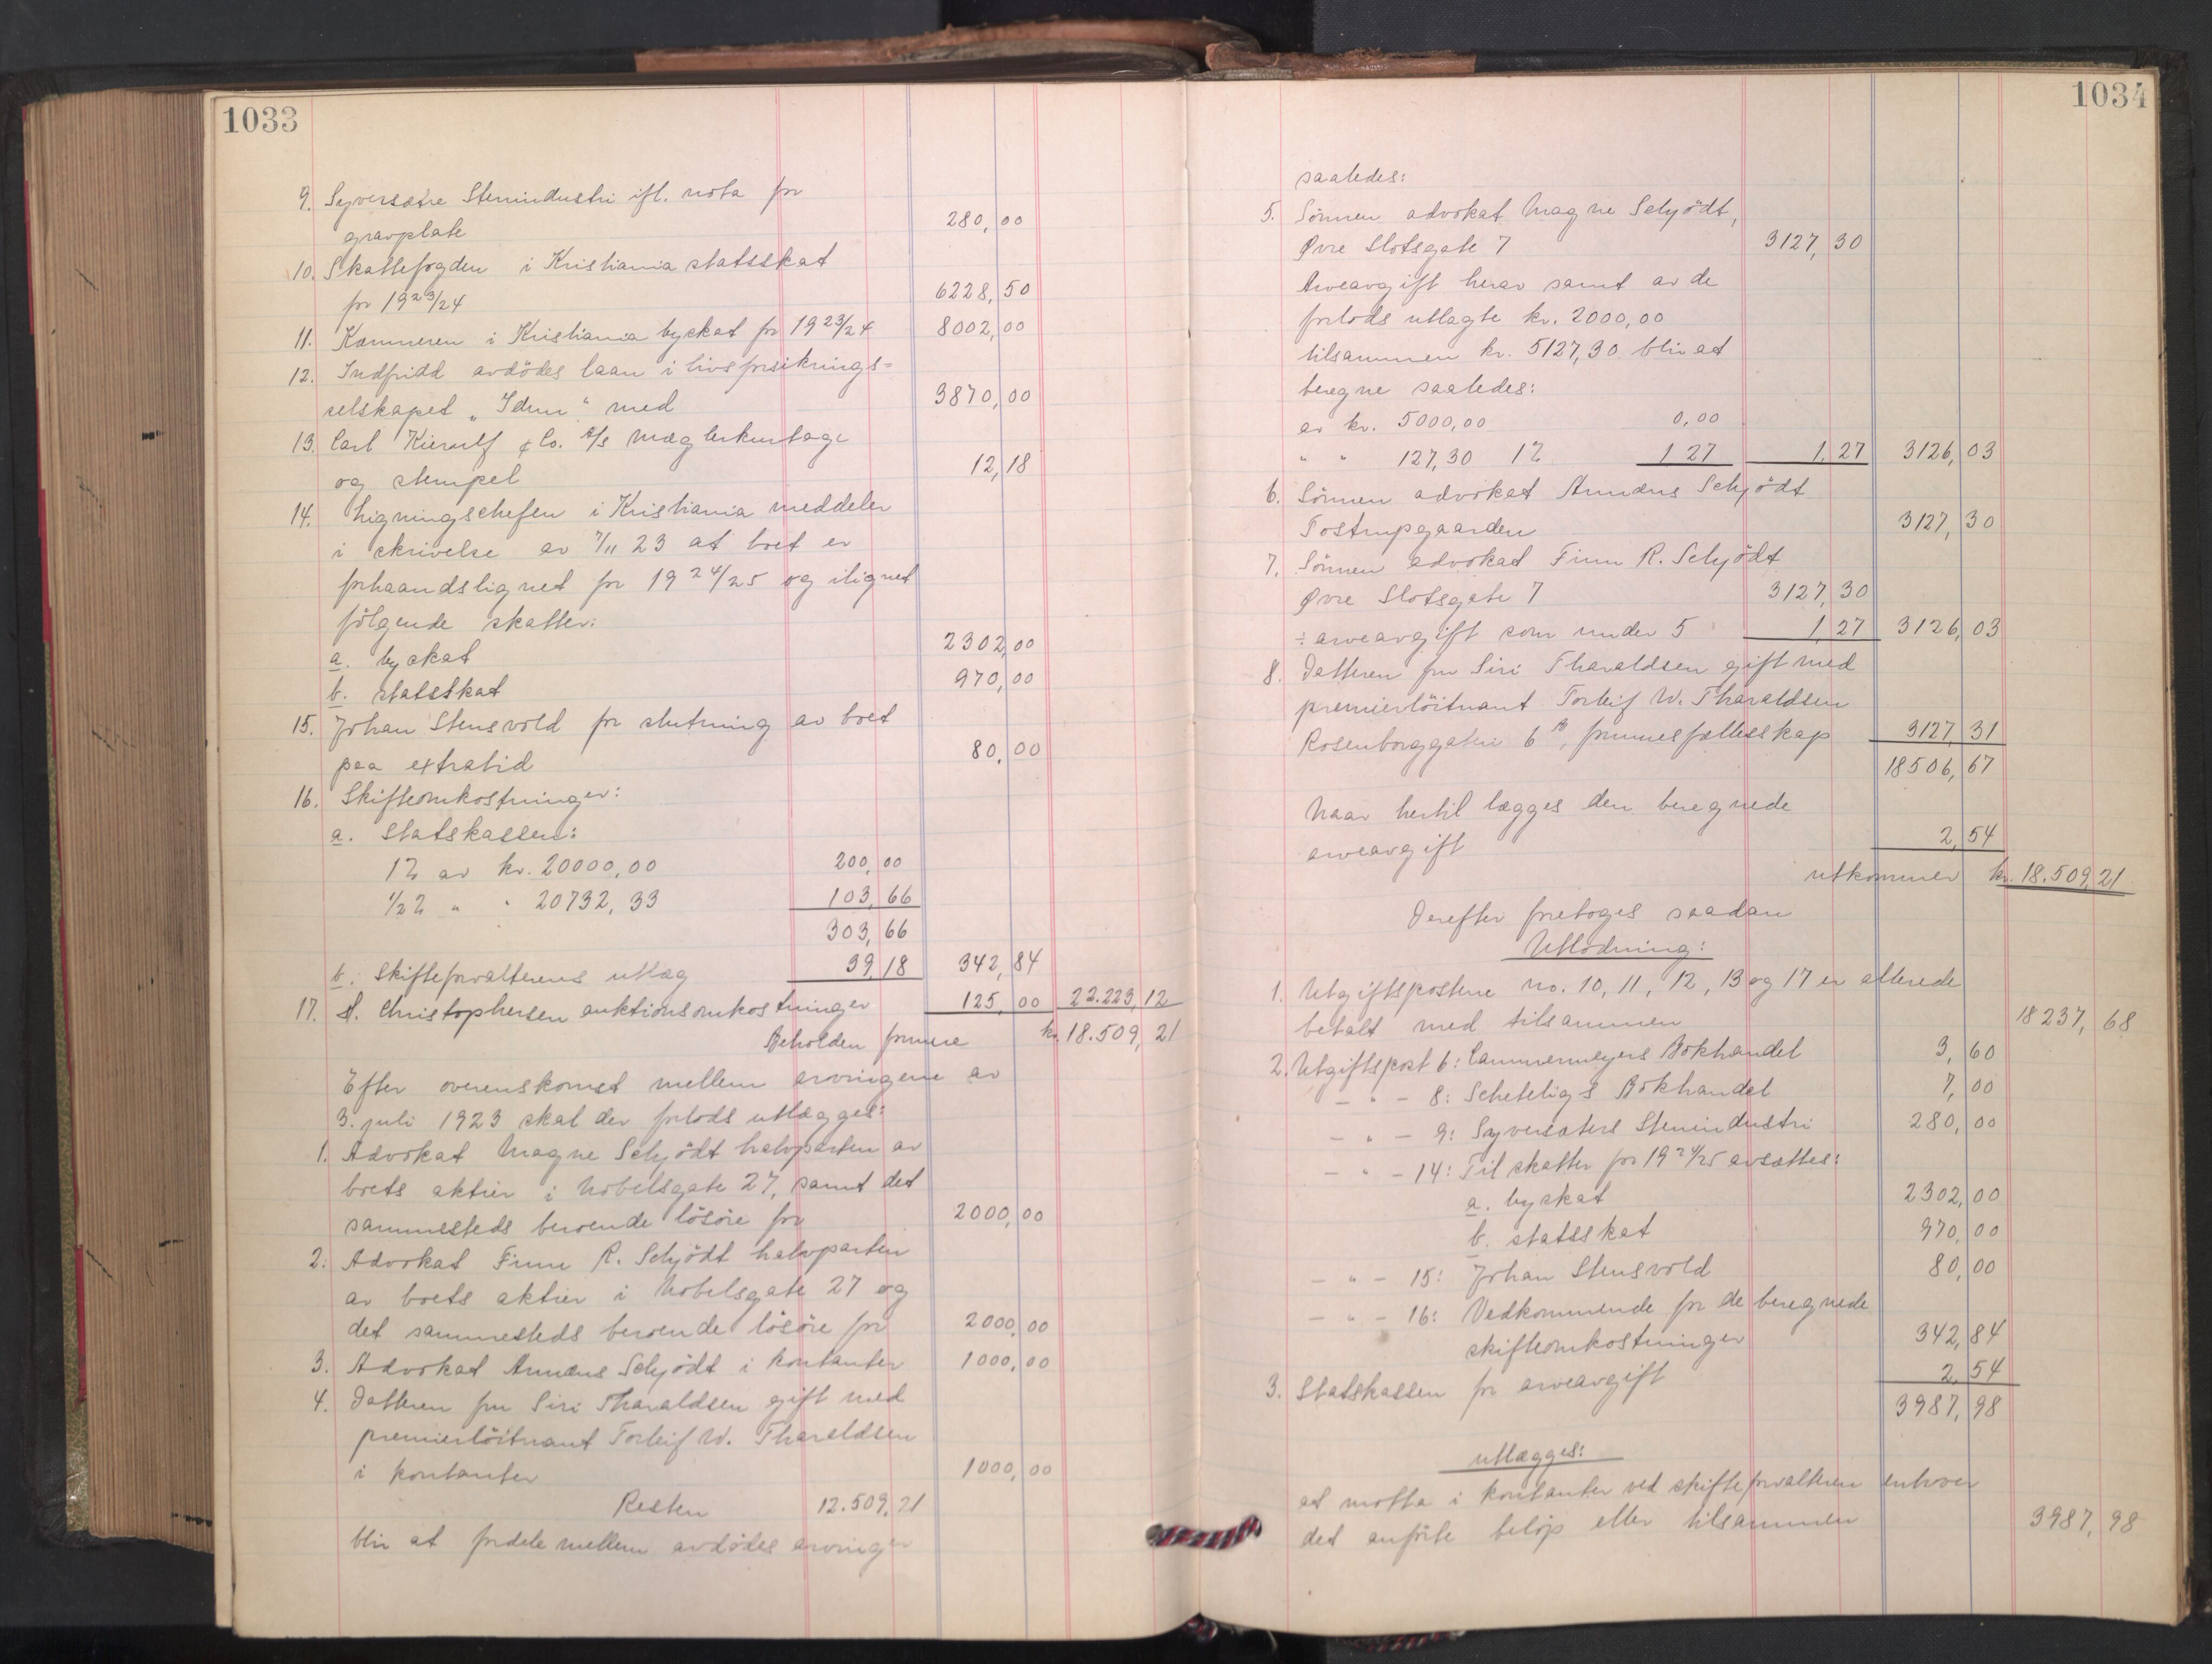 1033
9. Syversætre Stenindustri ifl. nota for
gravplate 280,00
10. Skattefogden i Kristiania statsskat
for 1923/24 6228,50
11. Kæmneren i Kristiania byskat for 1923/24 8002,00
12. Indfridd avdödes laan i livsforsikrings=
selskapet „Idun" med 3870,00
13. Carl Kierulf & Co. A/S mæglerkurtage
og stempel 12,18
14. Ligningschefen i Kristiania meddeler
i skrivelse av 7/11 23 at boet er
forhaandslignet for 1924/25 og ilignet
fölgende skatter:
a. byskat 2302,00
b. statsskat 970,00
15. Johan Stensvold for slutning av boet
paa extratid 80,00
16. Skifteomkostninger:
a. Statskassen:
1% av kr. 20000,00 200,00
1/2% " " 20732,33 103,66
303,66
b. Skifteforvalterens utlæg 39,18 342,84
17. H. Christophersen auktionsomkostninger 125,00 22.223,12
Beholden formue kr. 18.509,21
Efter overenskomst mellem arvingene av
3. juli 1923 skal der forlods utlægges:
1. Advokat Magne Schjödt halvparten av
boets aktier i Nobelsgate 27, samt det
sammesteds beroende lösöre for 2000,00
2. Advokat Finn R. Schjödt halvparten
av boets aktier i Nobelsgate 27 og
det sammesteds beroende lösöre for 2000,00
3. Advokat Annæus Schjödt i kontanter 1000,00
4. Datteren fru Siri Tharaldsen gift med
premierlöitnant Torleif W. Tharaldsen
i kontanter 1000,00
Resten 12.509,21
blir at fordele mellem avdödes arvinger
1034
saaledes:
5. Sönnen advokat Magne Schjödt,
Øvre Slotsgate 7 3127,30
Arveavgift herav samt av de
forlods utlagte kr. 2000,00
tilsammen kr. 5127,30 blir at
beregne saaledes:
av kr. 5000,00 0,00
" " 127,30 1% 1,27 1,27 3126,03
6. Sönnen advokat Annæus Schjödt
Tostrupgaarden 3127,30
7. Sönnen advokat Finn R. Schjödt
Øvre Slotsgate 7 3127,30
÷ arveavgift som under 5 1,27 3126,03
8. Datteren fru Siri Tharaldsen gift med
premierlöitnant Torleif W. Tharaldsen
Rosenborggaten 6B, formuesfællesskap 3127,31
18506,67
Naar hertil lægges den beregnede
arveavgift 2,54
utkommer kr. 18.509,21
Derefter foretoges saadan
Utlodning:
1. Utgiftspostene no. 10, 11, 12, 13 og 17 er allerede
betalt med tilsammen 18237,68
2. Utgiftspost 6: Cammermeyers Bokhandel 3,60
- " - 8: Scheteligs Bokhandel 7,00
- " - 9: Syversæters Stenindustri 280,00
- " - 14: Til skatter for 1924/25 avsættes:
a. byskat 2302,00
b. statsskat 970,00
- " - 15: Johan Stensvold 80,00
- " - 16: Vedkommende for de beregnede
skifteomkostninger 342,84
3. Statskassen for arveavgift 2,54
3987,98
utlægges:
at motta i kontanter ved skifteforvalteren enhver
det anförte belöp eller tilsammen 3987,98